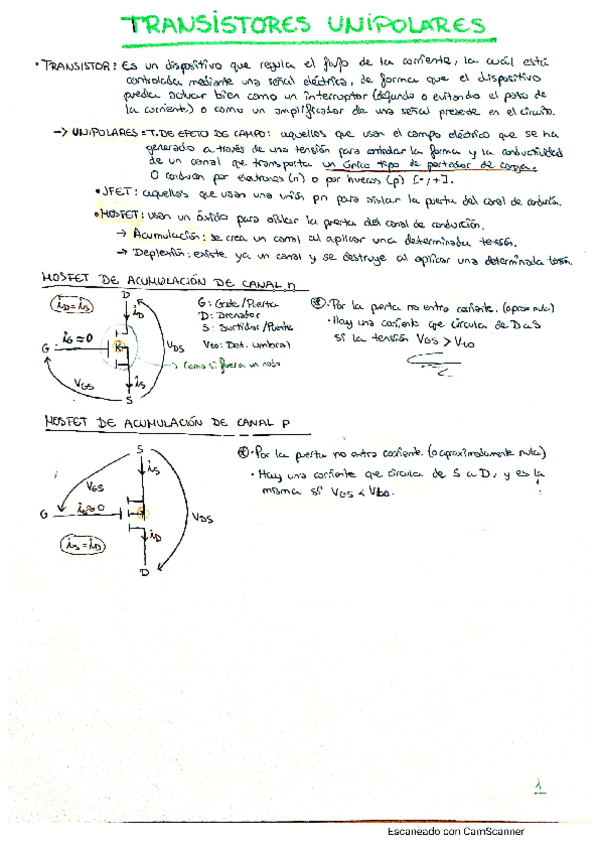 TRANSISTORES UNIPOLARES
• TRANSISTOR: Es un dispositivo que regula el flujo de la corriente, la cuál está
controlada mediante una señal eléctrica, de forma que el dispositivo
pueda actuar bien como un interruptor (dejando o evitando el paso de
la corriente) o como un amplificador de una señal presente en el circuito.
→ UNIPOLARES = T. DE EFECTO DE CAMPO: aquellos que usan el campo eléctrico que se ha
generado a través de una tensión para controlar la forma y la conductividad
de un canal que transporta un único tipo de portador de carga.
O conducen por electrones (n) o por huecos (p) [-,+].
• JFET: aquellos que usan una unión pn para aislar la puerta del canal de conducción.
• MOSFET: usan un óxido para aislar la puerta del canal de conducción.
→ Acumulación: se crea un canal al aplicar una determinada tensión.
→ Deplexión: existe ya un canal y se destruye al aplicar una determinada tensión.
MOSFET DE ACUMULACIÓN DE CANAL n
iD = iS
D
iD
G
iG ≈ 0
VGS
VDS
iS
S
G: Gate/Puerta
D: Drenador
S: Surtidor/Fuente
Vto: Det. umbral
→ Como si fuera un nodo
· Por la puerta no entra corriente. (aprox nula)
· Hay una corriente que circula de D a S
si la tensión VGS > Vto
MOSFET DE ACUMULACIÓN DE CANAL P
S
iS
VGS
G
iG ≈ 0
VDS
iS = iD
iD
D
· Por la puerta no entra corriente. (o aproximadamente nula)
· Hay una corriente que circula de S a D, y es la
misma si VGS < Vto.
1
Escaneado con CamScanner